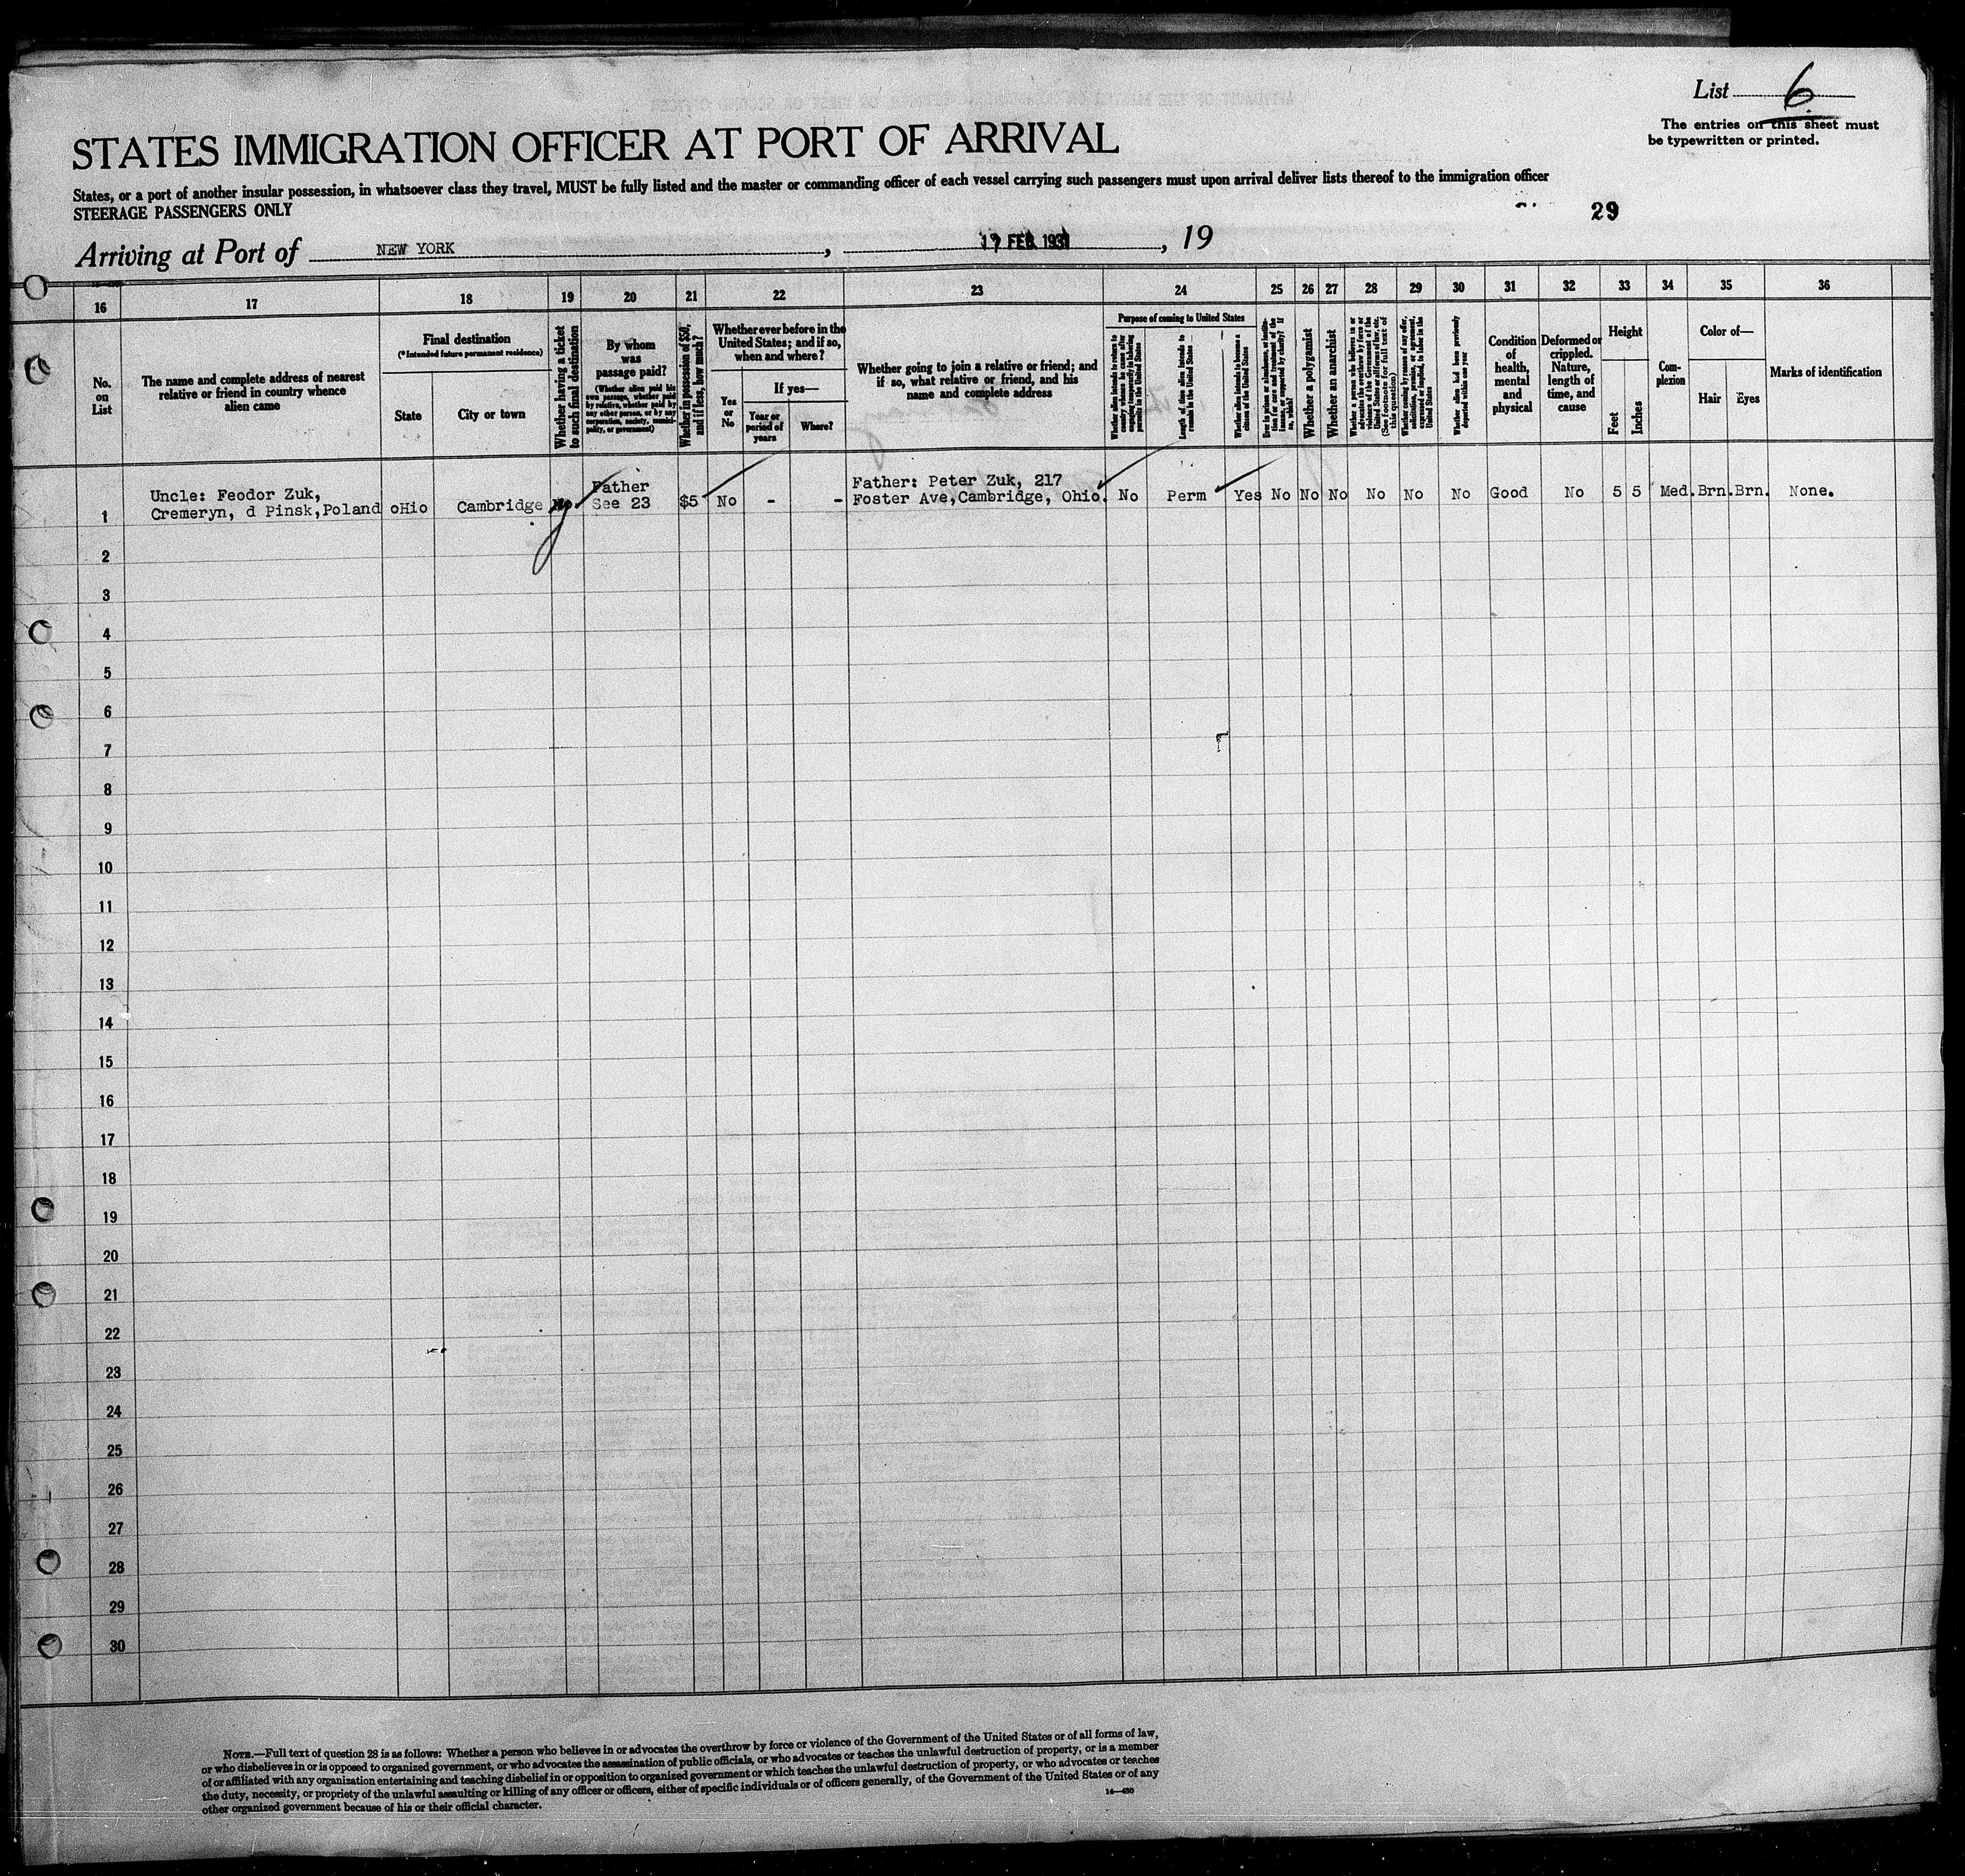 List 6
The entries on this sheet must
be typewritten or printed.
STATES IMMIGRATION OFFICER AT PORT OF ARRIVAL
States, or a port of another insular possession, in whatsoever class they travel, MUST be fully listed and the master or commanding officer of each vessel carrying such passengers must upon arrival deliver lists thereof to the immigration officer
STEERAGE PASSENGERS ONLY
29
Arriving at Port of NEW YORK, 17 FEB 1931, 19
16 17 18 19 20 21 22 23 24 25 26 27 28 29 30 31 32 33 34 35 36
No.
on
List
The name and complete address of nearest
relative or friend in country whence
alien came
Final destination
(*Intended future permanent residence)
State
City or town
Whether having a ticket
to such final destination
By whom
was
passage paid?
(Whether alien paid his
own passage, whether paid
by relative, whether paid by
any other person, or by any
corporation, society, munici-
pality, or government)
Whether in possession of $50,
and if less, how much?
Whether ever before in the
United States; and if so,
when and where?
Yes
or
No
If yes—
Year or
period of
years
Where?
Whether going to join a relative or friend; and
if so, what relative or friend, and his
name and complete address
Purpose of coming to United States
Whether alien intends to return to
country whence he came after
engaging temporarily in laboring
pursuits in the United States
Length of time alien intends to
remain in the United States
Whether alien intends to become a
citizen of the United States
Ever in prison or almshouse, or institu-
tion for care and treatment of the
insane, or supported by charity? If
so, which?
Whether a polygamist
Whether an anarchist
Whether a person who believes in or
advocates the overthrow by force or
violence of the Government of the
United States or all forms of law, etc.
(See footnote for full text of
this question)
Whether coming by reason of any offer,
solicitation, promise, or agreement,
expressed or implied, to labor in the
United States
Whether alien had been previously
deported within one year
Condition
of
health,
mental
and
physical
Deformed or
crippled.
Nature,
length of
time, and
cause
Height
Feet
Inches
Com-
plexion
Color of—
Hair
Eyes
Marks of identification
1 Uncle: Feodor Zuk,
Cremeryn, d Pinsk,Poland oHio Cambridge No Father
See 23 $5 No - - Father: Peter Zuk, 217
Foster Ave,Cambridge, Ohio. No Perm Yes No No No No No No Good No 5 5 Med. Brn. Brn. None.
2
3
4
5
6
7
8
9
10
11
12
13
14
15
16
17
18
19
20
21
22
23
24
25
26
27
28
29
30
NOTE.—Full text of question 28 is as follows: Whether a person who believes in or advocates the overthrow by force or violence of the Government of the United States or of all forms of law,
or who disbelieves in or is opposed to organized government, or who advocates the assassination of public officials, or who advocates or teaches the unlawful destruction of property, or is a member
of or affiliated with any organization entertaining and teaching disbelief in or opposition to organized government or which teaches the unlawful destruction of property, or who advocates or teaches
the duty, necessity, or propriety of the unlawful assaulting or killing of any officer or officers, either of specific individuals or of officers generally, of the Government of the United States or of any
other organized government because of his or their official character.
14—480